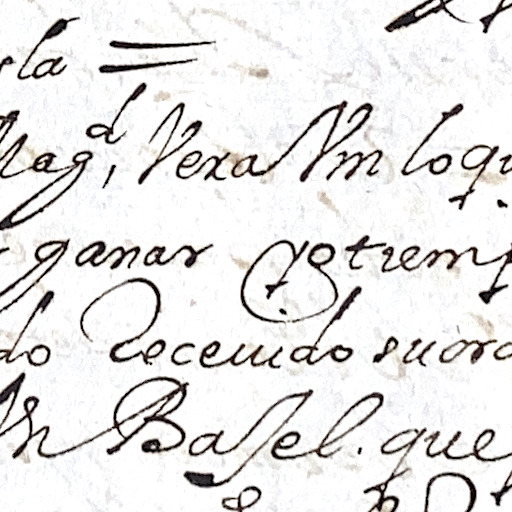 sla =
Magd, Vera Vm loqu
ganar qe tiemp
do Receuido suord
Vm Basel. que